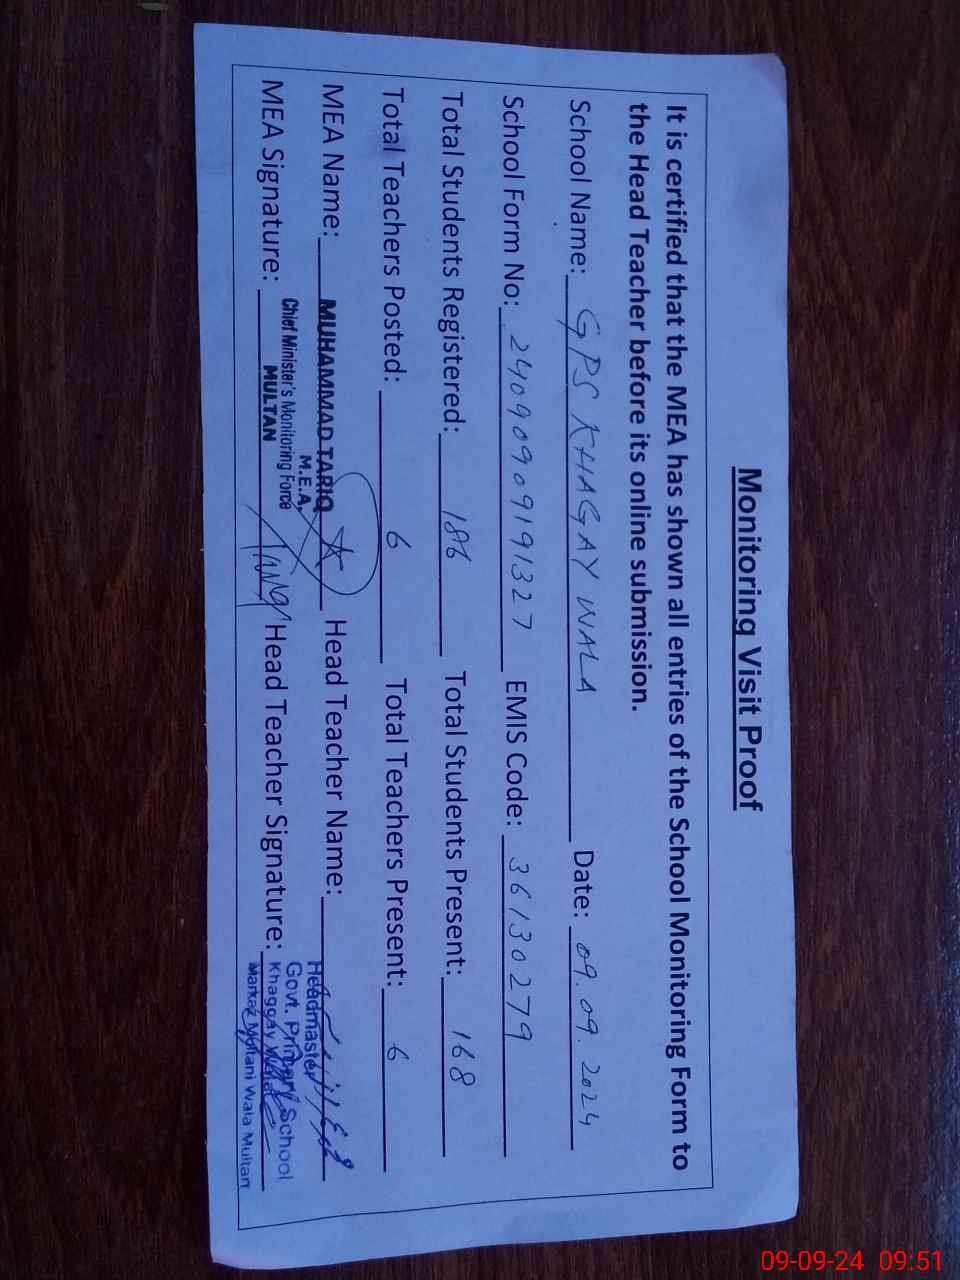 Monitoring Visit Proof
It is certified that the MEA has shown all entries of the School Monitoring Form to
the Head Teacher before its online submission.
School Name: GPS KHAGAY WALA Date: 09.09.2024
School Form No: 24090909191327 EMIS Code: 36130279
Total Students Registered: 186 Total Students Present: 168
Total Teachers Posted: 6 Total Teachers Present: 6
MEA Name: MUHAMMAD TARIQ Head Teacher Name:
M.E.A.
Chief Minister's Monitoring Force
MULTAN
MEA Signature: Head Teacher Signature:
Headmaster
Govt. Primary School
Khaggay Wala
Markaz Multani Wala Multan
09-09-24 09:51